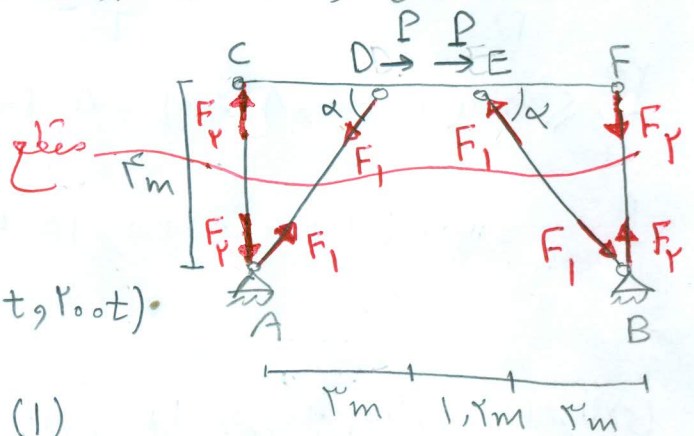 P P
C D E F
F۲ α F۱ F۱ α F۲
مقطع ۴m
F۲ F۱ F۱ F۲
t و ۲۰۰t)
A B
۳m ۱,۲m ۳m
(1)